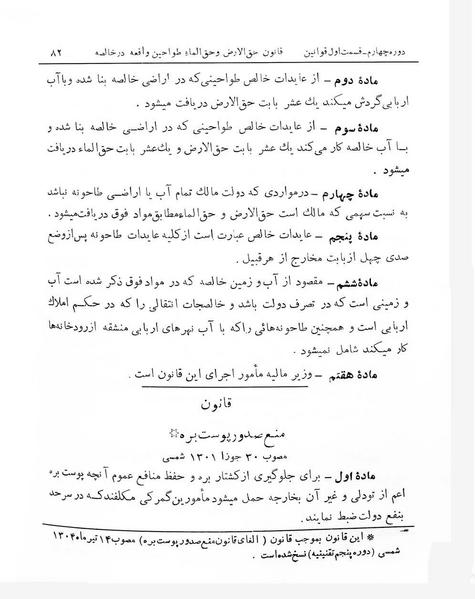 دوره چهارم ـ قسمت اول قوانین قانون حق الارض وحق الماء طواحین واقعه در خالصه ۸۲
مادۀ دوم ـ از عایدات خالص طواحینی که در اراضی خالصه بنا شده وبا آب
اربابی گردش میکند یك عشر بابت حق الارض دریافت میشود .
مادۀ سوم ـ از عایدات خالص طواحینی که در اراضی خالصه بنا شده و
با آب خالصه کار می‌کند یك عشر بابت حق الارض و یك عشر بابت حق الماء دریافت
میشود .
مادۀ چهارم ـ در مواردی که دولت مالك تمام آب یا اراضی طاحونه نباشد
به نسبت سهمی که مالك است حق الارض و حق الماء مطابق مواد فوق دریافت میشود .
مادۀ پنجم ـ عایدات خالص عبارت است از کلیه عایدات طاحونه پس از وضع
صدی چهل از بابت مخارج از هر قبیل .
مادۀ ششم ـ مقصود از آب و زمین خالصه که در مواد فوق ذکر شده است آب
و زمینی است که در تصرف دولت باشد و خالصجات انتقالی را که در حکم املاك
اربابی است و همچنین طاحونه‌هائی را که با آب نهرهای اربابی منشقه از رودخانه‌ها
کار میکند شامل نمیشود .
مادۀ هفتم ـ وزیر مالیه مأمور اجرای این قانون است .
قانون
منع صدور پوست بره *
مصوب ۳۰ جوزا ۱۳۰۱ شمسی
مادۀ اول ـ برای جلوگیری از کشتار بره و حفظ منافع عموم آنچه پوست بره
اعم از تودلی و غیر آن بخارجه حمل میشود مأمورین گمرکی مکلفند که در سرحد
بنفع دولت ضبط نمایند .
* این قانون بموجب قانون ( الغای قانون منع صدور پوست بره ) مصوب ۱۴ تیرماه ۱۳۰۴
شمسی (دوره پنجم تقنینیه) نسخ شده است .